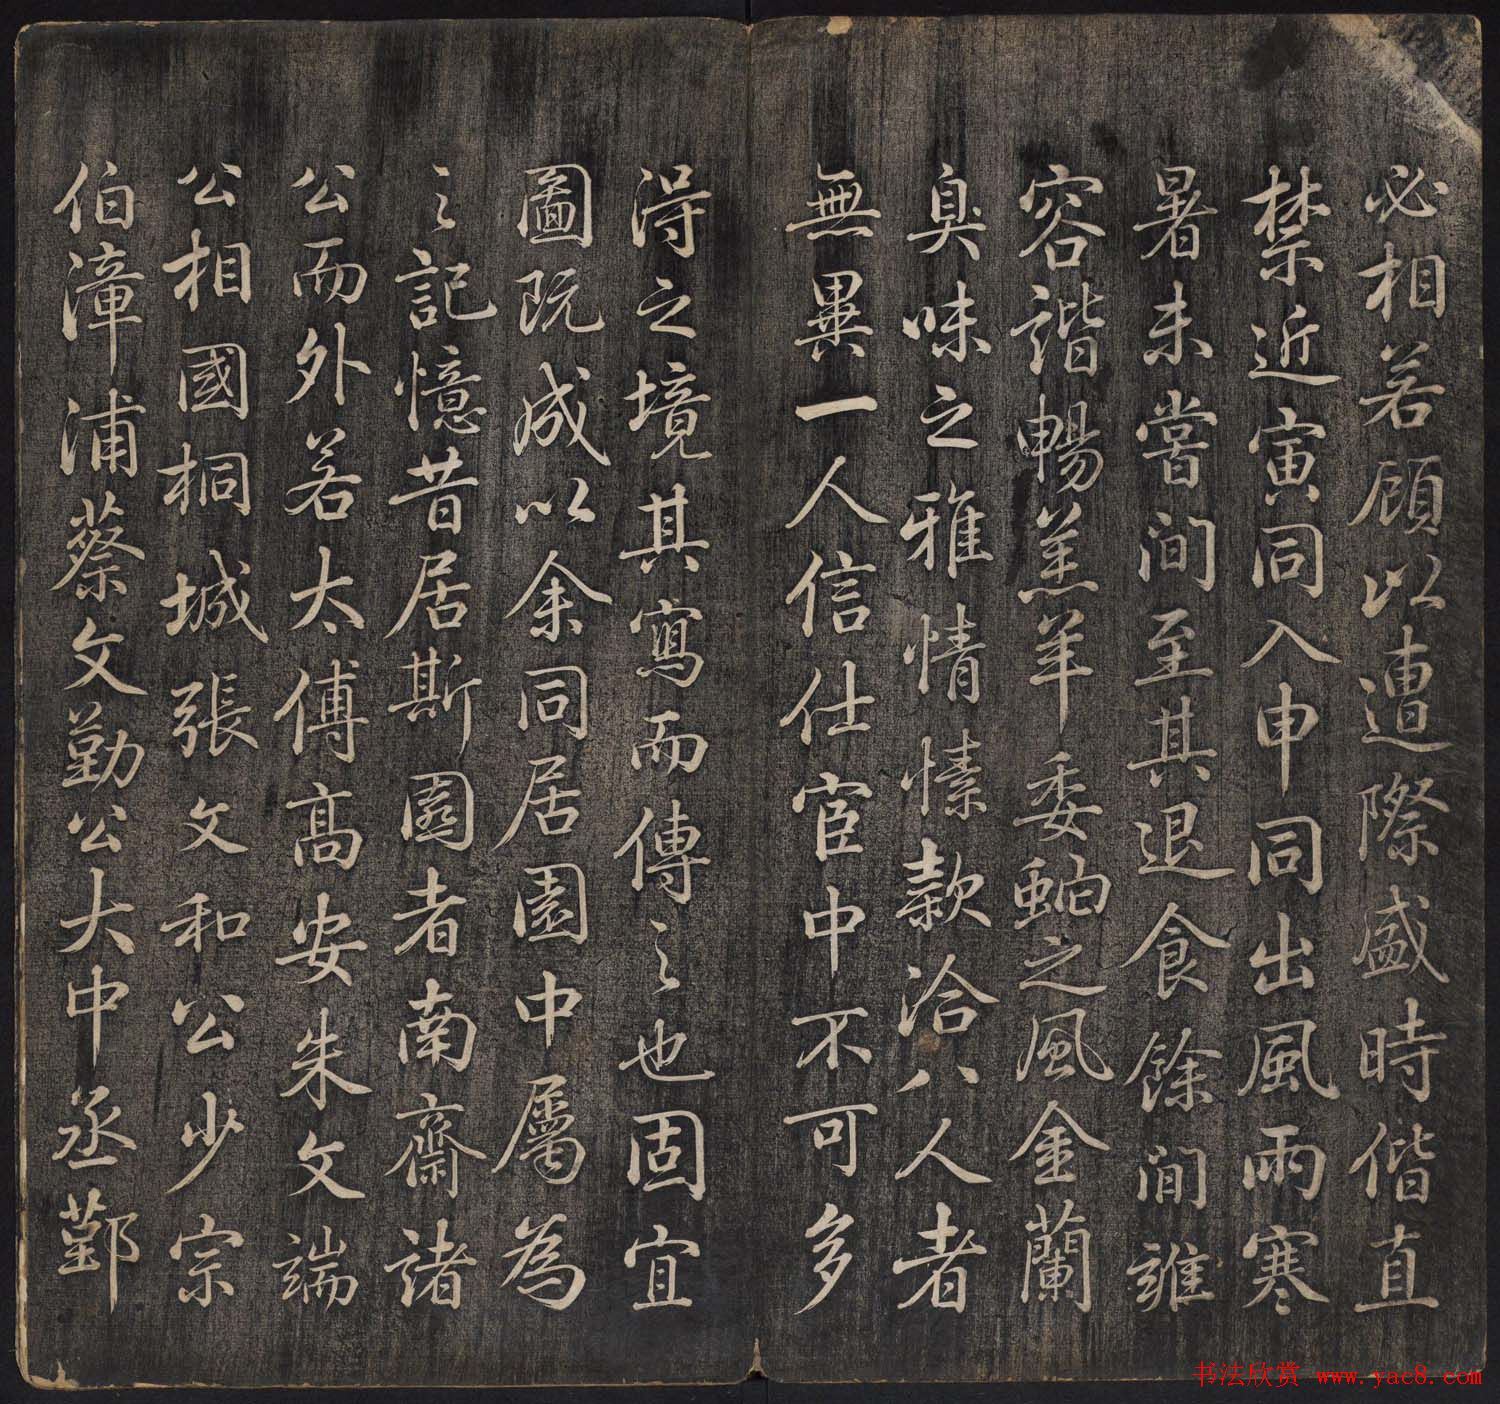 必相若顧以遭際盛時偕直
禁近寅同入申同出風雨寒
暑未嘗間至其退食餘間雍
容諧暢羔羊委蛇之風金蘭
臭味之雅情愫款洽八人者
無異一人信仕宦中不可多
得之境其寫而傳之也固宜
圖既成以余同居園中屬為
之記憶昔居斯園者南齋諸
公而外若太傅高安朱文端
公相國桐城張文和公少宗
伯漳浦蔡文勤公大中丞鄞
书法欣赏 www.yac8.com